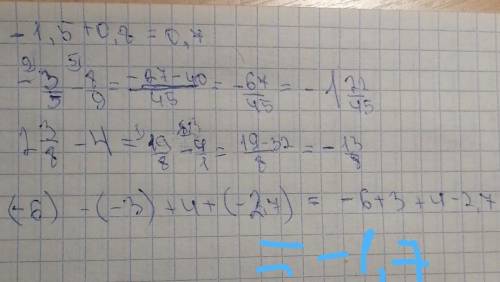 -1,5+0,8=0,7
-3/5 9) - 8/9 5) = -27-40/45 = -67/45 = -1 22/45
2 3/8 - 4 = 19/8 - 4/1 8) = 19-32/8 = -13/8
(-6) - (-3) + 4 + (-2,7) = -6+3+4-2,7
= -1,7